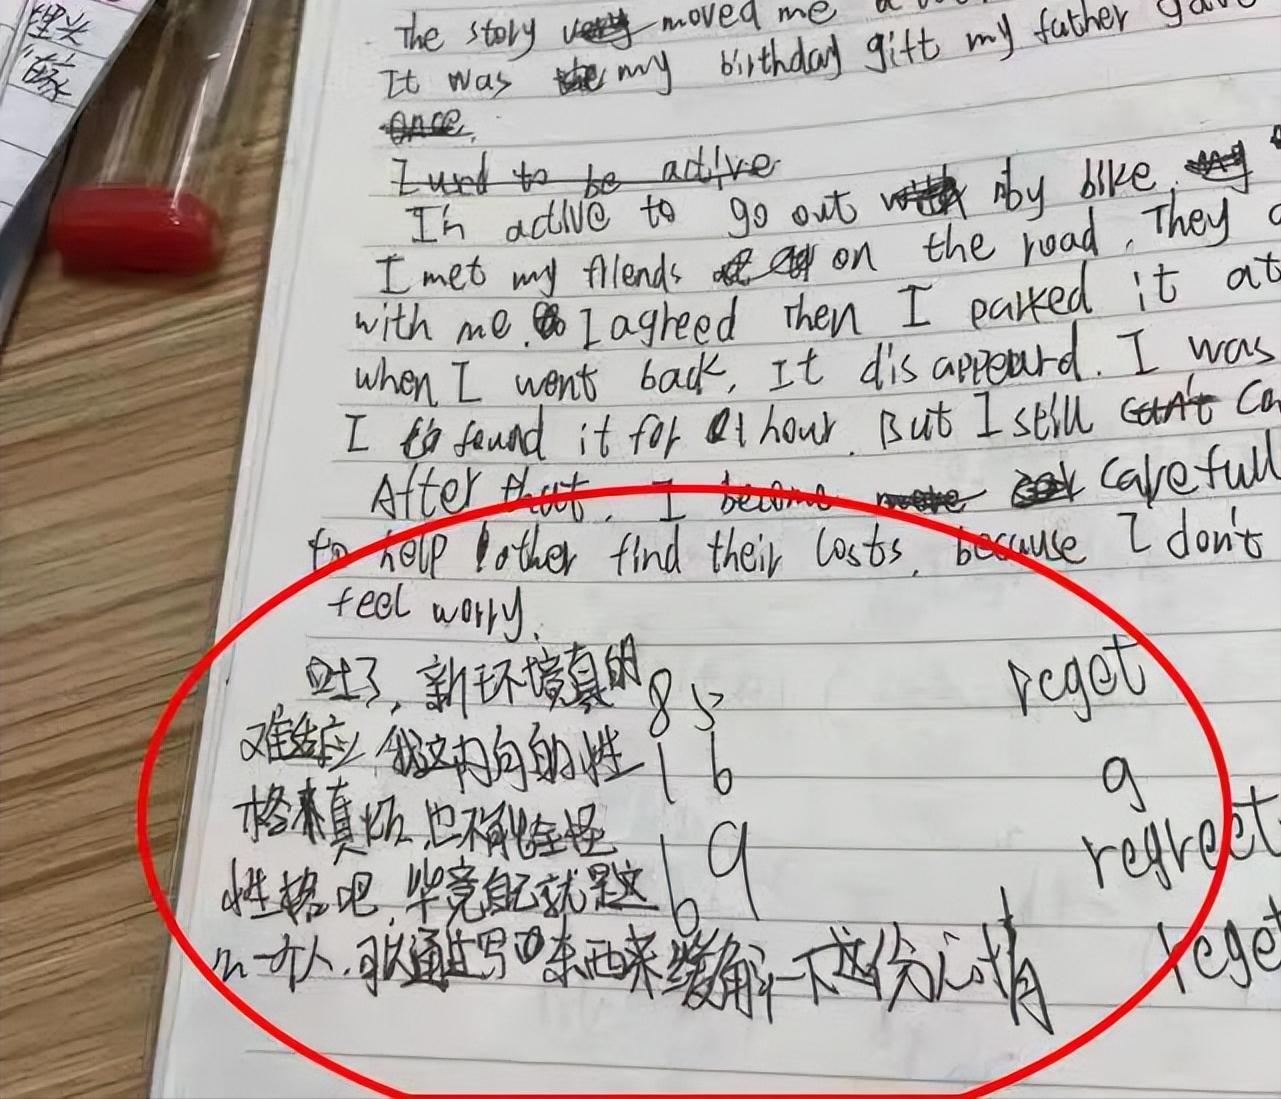 埋头
The story moved me a
It was my birthday gift my father gave
once.
I used to be active
I'm active to go out by bike.
I met my friends on the road. They
with me. I agreed Then I parked it at
when I went back, It disappeard. I was
I found it for 1 hour. But I still can't Ca
After that, I become more carefull
to help other find their losts, because I don't
feel worry.
吐了，新环境真的 85 reget
难适应 我这内向的性 16 g
格来真的 也不能全怪 19 regreet
性格吧，毕竟自己就是这 69
么一个人，可以通过写东西来缓解一下这份心情 rege